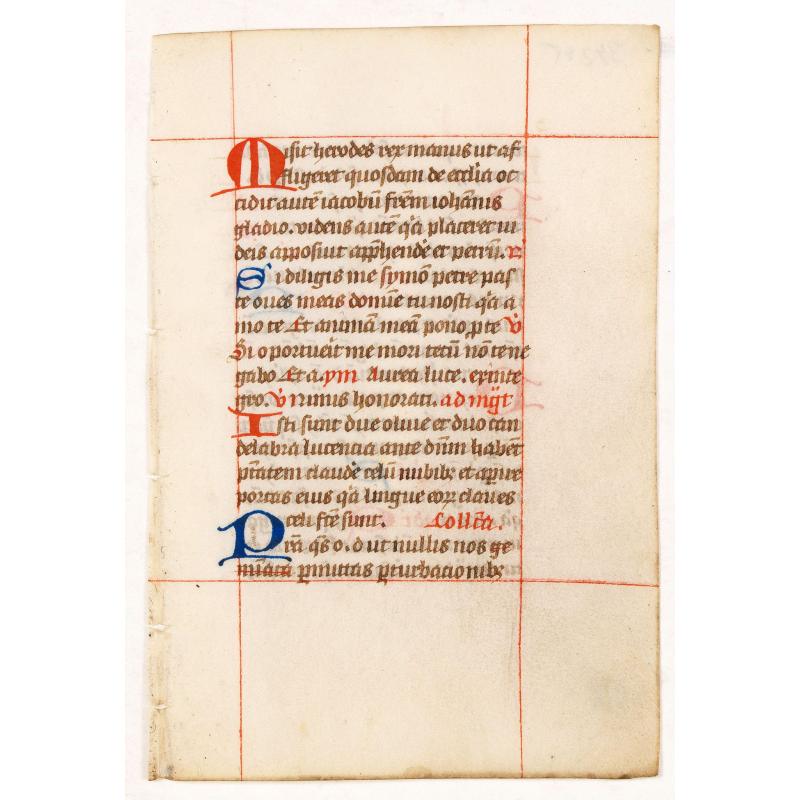 Misit herodes rex manus ut af
fligeret quosdam de ecclĩa oc
cidit autẽ iacobũ frẽm iohãnis
gladio. videns autẽ qͥa placeret iu
deis apposiut app̃hendẽ et petrũ. R
Si diligis me symõ petre pas
te oues meas domĩe tu nosti qͥa a
mo te Et animã meã pono ꝓ te V
Si oportueͥit me mori tecũ nõ te ne
gabo Et a. ym Aurea luce. ex inte
gro. V Nimis honorati. ad mg̃t
Isti sunt due oliue et duo can
delabra lucencia ante dñm habẽt
ptãtem claudẽ celũ nubibꝫ et apͥire
portas eius qͥa lingue eoꝝ claues
celi fc̃e sunt. Collc̃ta.
Pr̃a qͥs o. d ut nullis nos ꝑ
mittas ꝑturbacionibꝫ